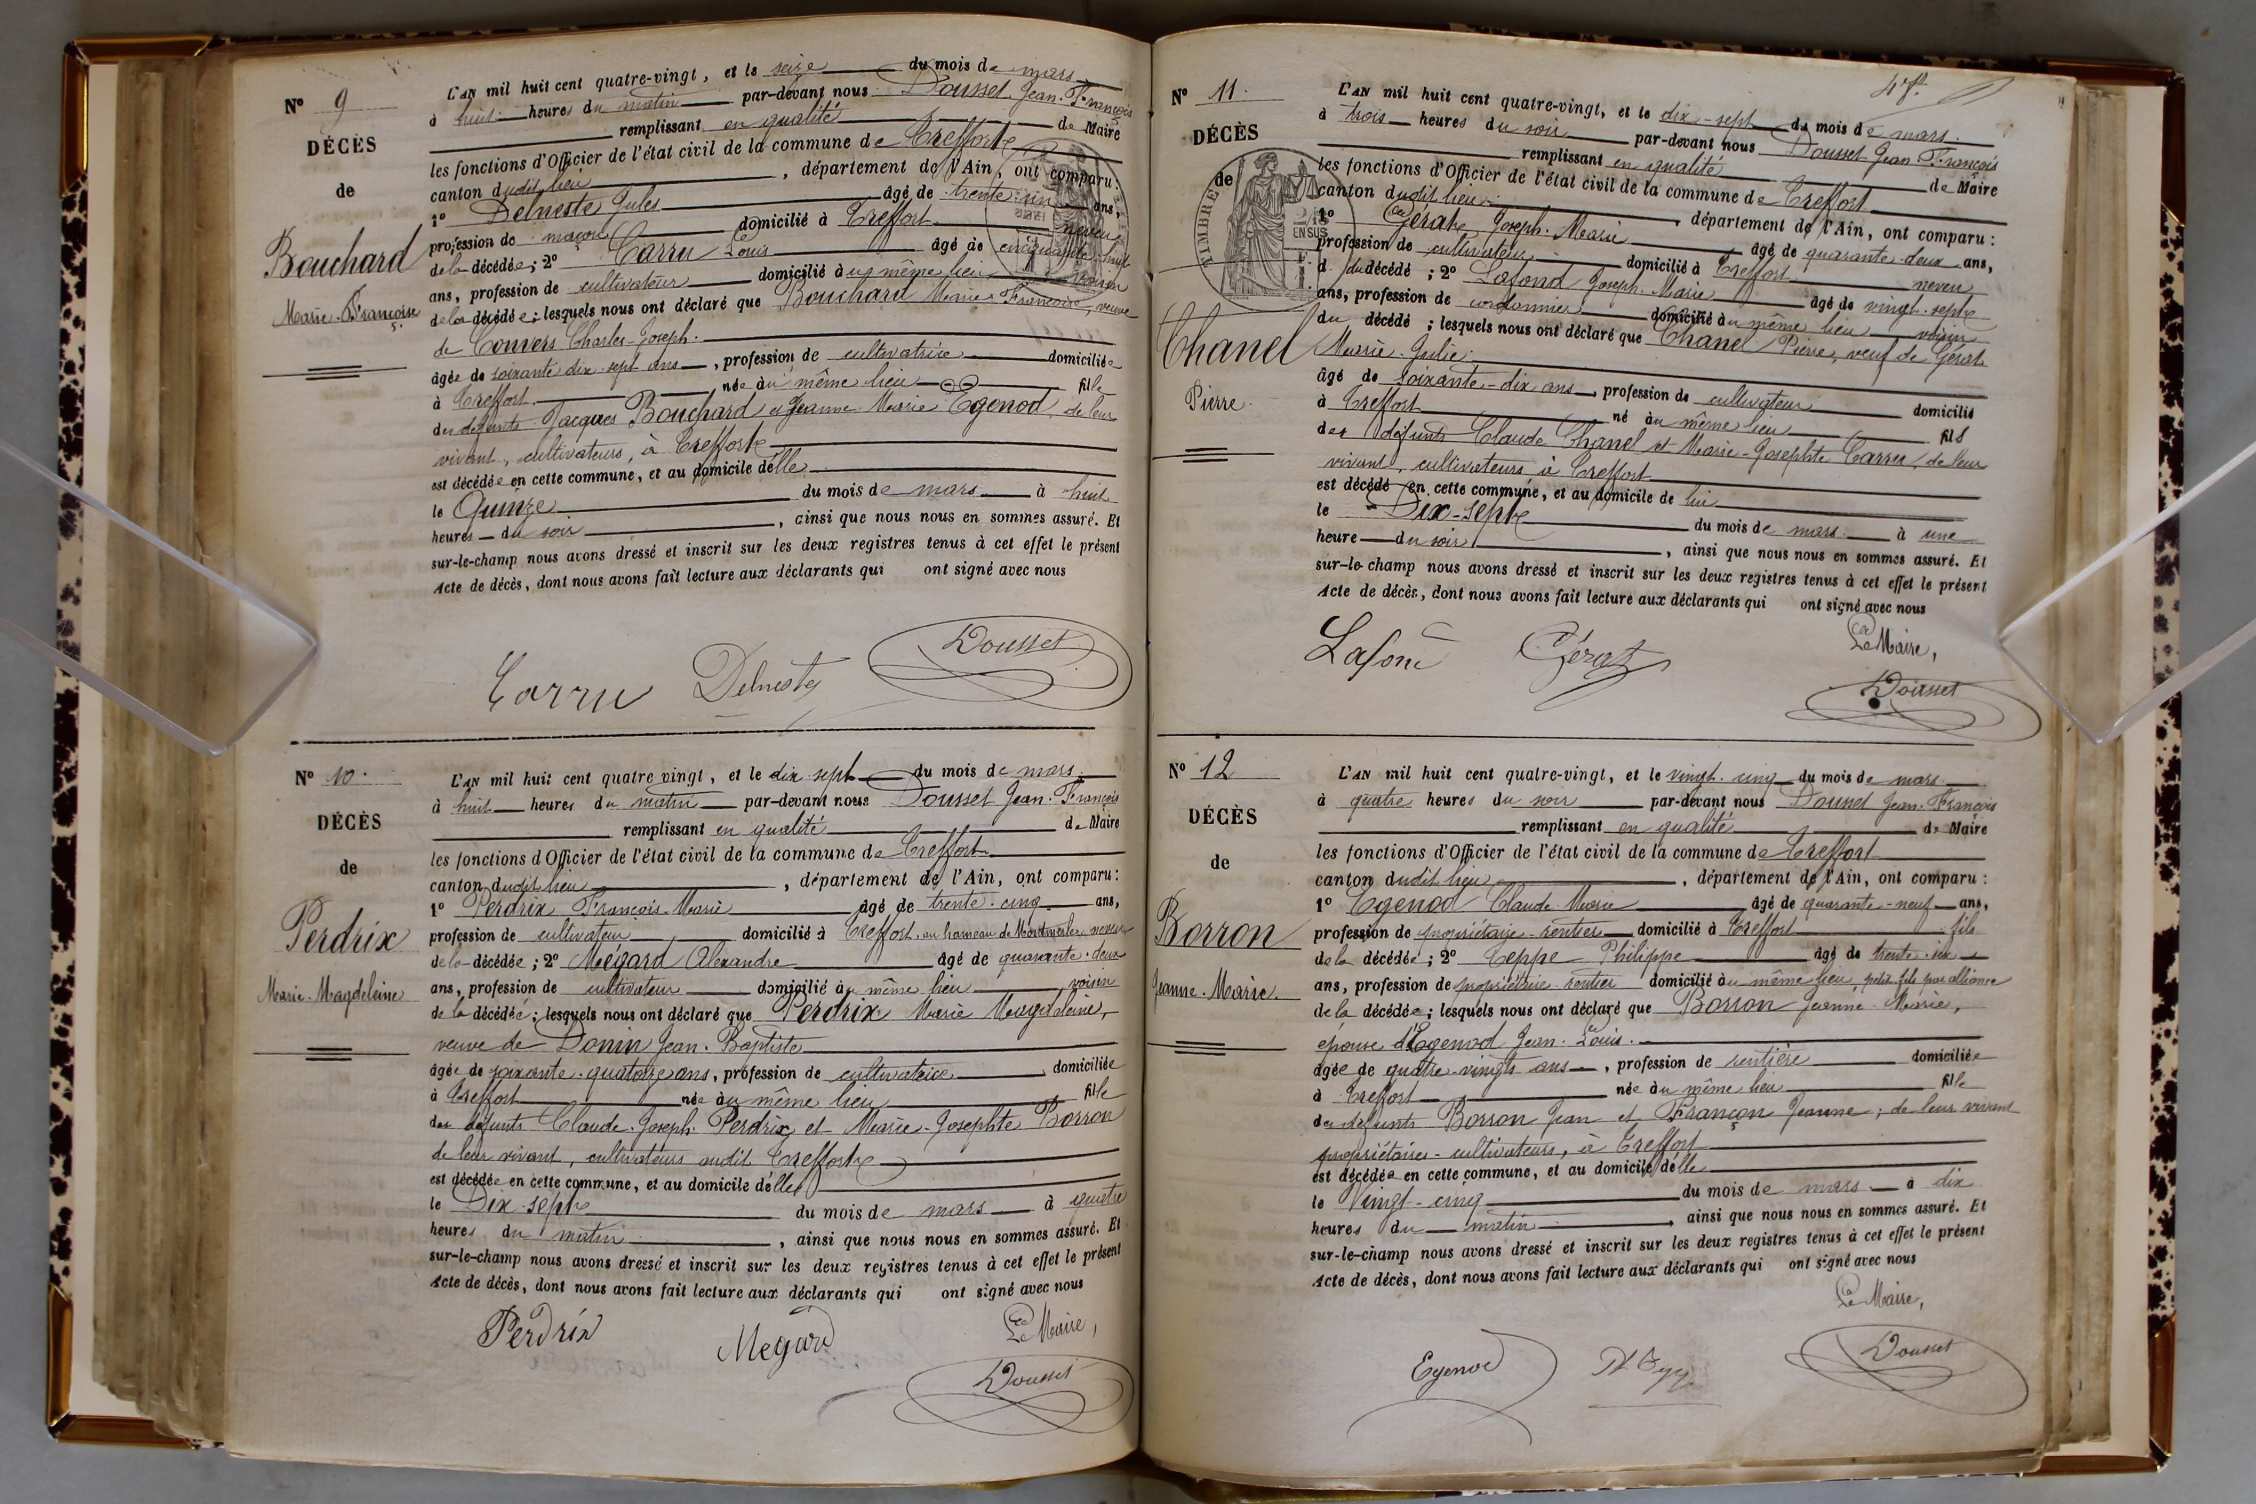 N° 9
DÉCÈS
de
Bouchard
Marie-Françoise
L'AN mil huit cent quatre-vingt, et le seize du mois de mars
à huit heures du matin par-devant nous Dousset Jean-François
remplissant en qualité de Maire
les fonctions d'Officier de l'état civil de la commune de Treffort
canton dudit lieu, département de l'Ain, ont comparu :
1° Delneste Jules âgé de trente-un ans,
profession de maçon domicilié à Treffort neveu
de la décédée ; 2° Carru Louis âgé de cinquante-huit
ans, profession de cultivateur domicilié au même lieu voisin
de la décédée ; lesquels nous ont déclaré que Bouchard Marie-Françoise, veuve
de Convers Charles-Joseph.
âgée de soixante dix-sept ans, profession de cultivatrice domiciliée
à Treffort née au même lieu fille
des défunts Jacques Bouchard et Jeanne-Marie Egenod, de leur
vivant, cultivateurs, à Treffort
est décédée en cette commune, et au domicile d'elle
le Quinze du mois de mars à huit
heures du soir, ainsi que nous nous en sommes assuré. Et
sur-le-champ nous avons dressé et inscrit sur les deux registres tenus à cet effet le présent
Acte de décès, dont nous avons fait lecture aux déclarants qui ont signé avec nous
Carru Delneste Dousset
N° 10.
DÉCÈS
de
Perdrix
Marie-Magdeleine
L'AN mil huit cent quatre-vingt, et le dix-sept du mois de mars
à huit heures du matin par-devant nous Dousset Jean-François
remplissant en qualité de Maire
les fonctions d'Officier de l'état civil de la commune de Treffort
canton dudit lieu, département de l'Ain, ont comparu :
1° Perdrix François-Marie âgé de trente-cinq ans,
profession de cultivateur domicilié à Treffort, au hameau de neveu
de la décédée ; 2° Mégard Alexandre âgé de quarante-deux
ans, profession de cultivateur domicilié au même lieu voisin
de la décédée ; lesquels nous ont déclaré que Perdrix Marie Magdeleine,
veuve de Donin Jean-Baptiste
âgée de soixante-quatorze ans, profession de cultivatrice domiciliée
à Treffort née au même lieu fille
des défunts Claude-Joseph Perdrix et Marie-Josephte Borron
de leur vivant, cultivateurs audit Treffort
est décédée en cette commune, et au domicile d'elle
le Dix-sept du mois de mars à quatre
heures du matin, ainsi que nous nous en sommes assuré. Et
sur-le-champ nous avons dressé et inscrit sur les deux registres tenus à cet effet le présent
Acte de décès, dont nous avons fait lecture aux déclarants qui ont signé avec nous
Le Maire,
Perdrix Megard Dousset
N° 11.
DÉCÈS
de
TIMBRE
EN SUS
Chanel
Pierre
L'AN mil huit cent quatre-vingt, et le dix-sept du mois de mars.
à trois heures du soir par-devant nous Dousset Jean-François
remplissant en qualité de Maire
les fonctions d'Officier de l'état civil de la commune de Treffort
canton dudit lieu, département de l'Ain, ont comparu :
1° Gérat Joseph-Marie âgé de quarante-deux ans,
profession de cultivateur domicilié à Treffort neveu
d du décédé ; 2° Lafond Joseph-Marie âgé de vingt-sept
ans, profession de cordonnier domicilié au même lieu voisin
du décédé ; lesquels nous ont déclaré que Chanel Pierre, veuf de Gérat
Marie-Julie.
âgé de soixante-dix ans, profession de cultivateur domicilié
à Treffort né au même lieu fils
des défunts Claude Chanel et Marie-Josephte Carru, de leur
vivant, cultivateurs à Treffort
est décédé en cette commune, et au domicile de lui
le Dix-sept du mois de mars à une
heure du soir, ainsi que nous nous en sommes assuré. Et
sur-le-champ nous avons dressé et inscrit sur les deux registres tenus à cet effet le présent
Acte de décès, dont nous avons fait lecture aux déclarants qui ont signé avec nous
Le Maire,
Lafond Gérat Dousset
N° 12
DÉCÈS
de
Borron
Jeanne-Marie.
L'AN mil huit cent quatre-vingt, et le vingt-cinq du mois de mars
à quatre heures du soir par-devant nous Dousset Jean-François
remplissant en qualité de Maire
les fonctions d'Officier de l'état civil de la commune de Treffort
canton dudit lieu, département de l'Ain, ont comparu :
1° Egenod Claude-Marie âgé de quarante-neuf ans,
profession de propriétaire-rentier domicilié à Treffort fils
de la décédée ; 2° Teppe Philippe âgé de trente-six
ans, profession de propriétaire rentier domicilié au même lieu, petit-fils par alliance
de la décédée ; lesquels nous ont déclaré que Borron Jeanne-Marie,
épouse d'Egenod Jean-Louis.
âgée de quatre-vingts ans, profession de rentière domiciliée
à Treffort née au même lieu fille
des défunts Borron Jean et Françon Jeanne ; de leur vivant
propriétaires-cultivateurs, à Treffort
est décédée en cette commune, et au domicile d'elle
le Vingt-cinq du mois de mars à dix
heures du matin, ainsi que nous nous en sommes assuré. Et
sur-le-champ nous avons dressé et inscrit sur les deux registres tenus à cet effet le présent
Acte de décès, dont nous avons fait lecture aux déclarants qui ont signé avec nous
Le Maire,
Egenod Dousset